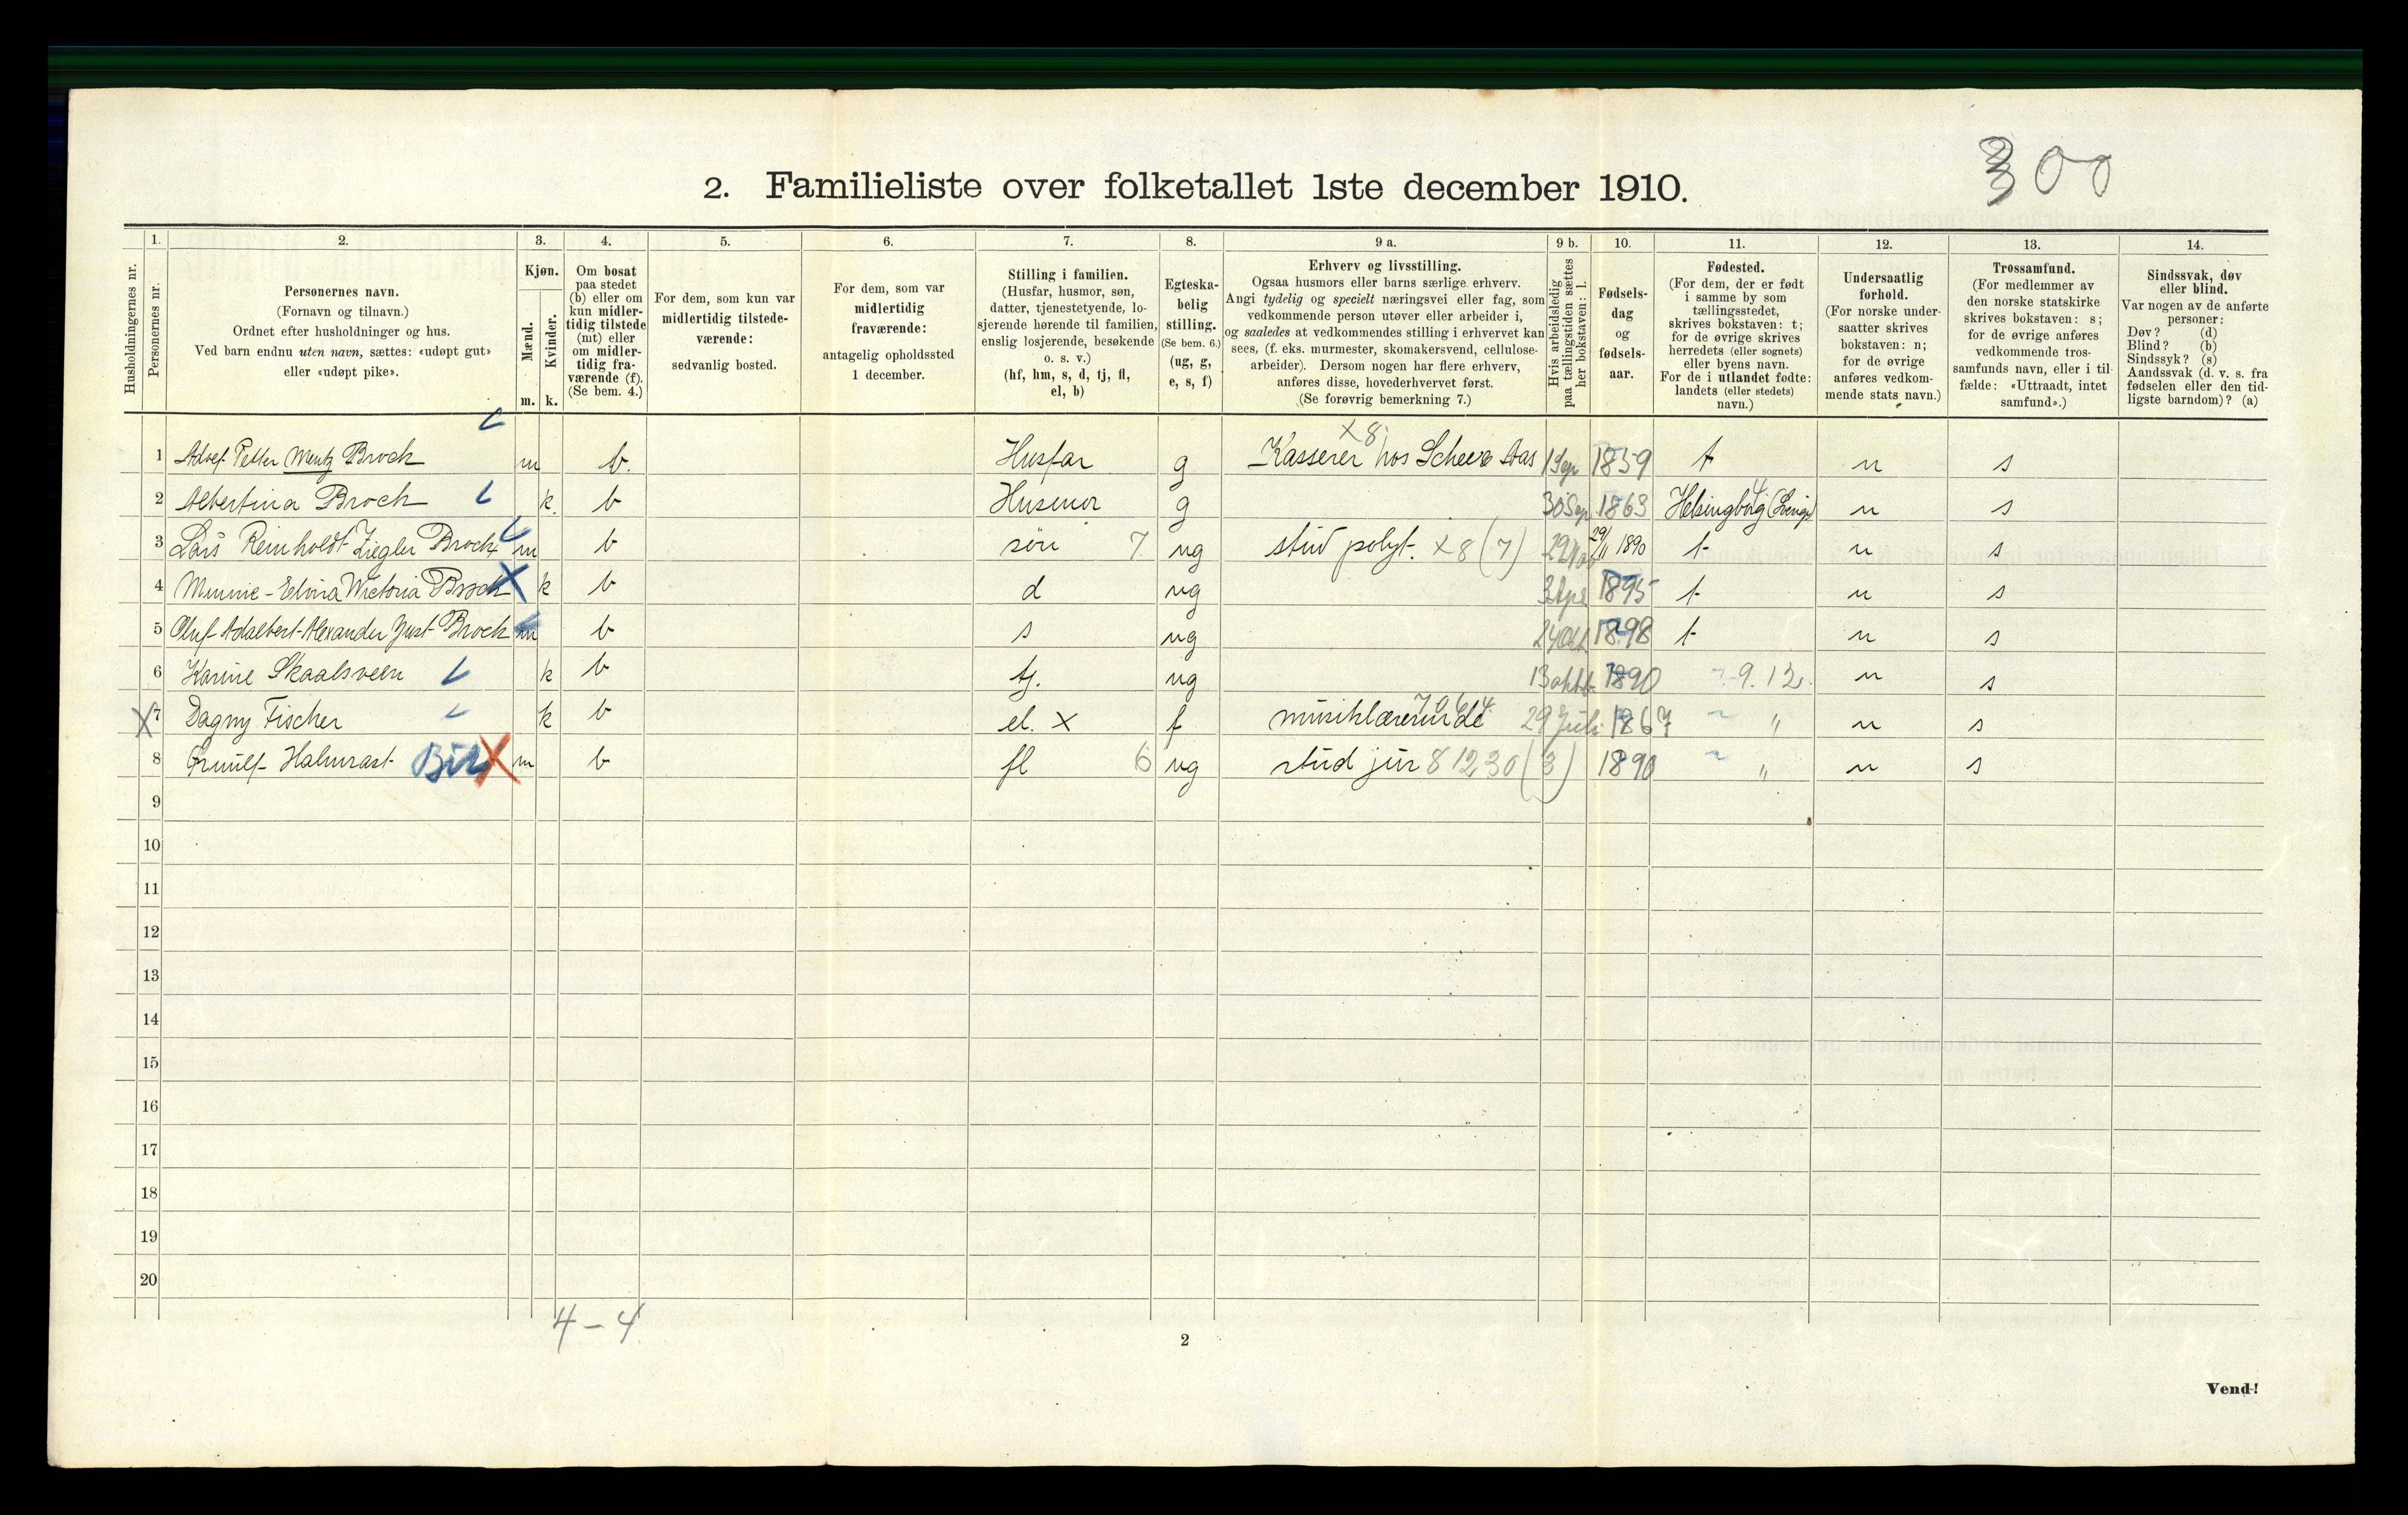 300
2. Familieliste over folketallet 1ste december 1910.
1. 2. 3. 4. 5. 6. 7. 8. 9 a. 9 b. 10. 11. 12. 13. 14.
Husholdningernes nr.
Personernes nr.
Personernes navn.
(Fornavn og tilnavn.)
Ordnet efter husholdninger og hus.
Ved barn endnu uten navn, sættes: «udøpt gut»
eller «udøpt pike».
Kjøn.
Mænd.
Kvinder.
m. k.
Om bosat
paa stedet
(b) eller om
kun midler-
tidig tilstede
(mt) eller
om midler-
tidig fra-
værende (f).
(Se bem. 4.)
For dem, som kun var
midlertidig tilstede-
værende:
sedvanlig bosted.
For dem, som var
midlertidig
fraværende:
antagelig opholdssted
1 december.
Stilling i familien.
(Husfar, husmor, søn,
datter, tjenestetyende, lo-
sjerende hørende til familien,
enslig losjerende, besøkende
o. s. v.)
(hf, hm, s, d, tj, fl,
el, b)
Egteska-
belig
stilling.
(Se bem. 6.)
(ug, g,
e, s, f)
Erhverv og livsstilling.
Ogsaa husmors eller barns særlige erhverv.
Angi tydelig og specielt næringsvei eller fag, som
vedkommende person utøver eller arbeider i,
og saaledes at vedkommendes stilling i erhvervet kan
sees, (f. eks. murmester, skomakersvend, cellulose-
arbeider). Dersom nogen har flere erhverv,
anføres disse, hovederhvervet først.
(Se forøvrig bemerkning 7.)
Hvis arbeidsledig
paa tællingstiden sættes
her bokstaven: l.
Fødsels-
dag
og
fødsels-
aar.
Fødested.
(For dem, der er født
i samme by som
tællingsstedet,
skrives bokstaven: t;
for de øvrige skrives
herredets (eller sognets)
eller byens navn.
For de i utlandet fødte:
landets (eller stedets)
navn.)
Undersaatlig
forhold.
(For norske under-
saatter skrives
bokstaven: n;
for de øvrige
anføres vedkom-
mende stats navn.)
Trossamfund.
(For medlemmer av
den norske statskirke
skrives bokstaven: s;
for de øvrige anføres
vedkommende tros-
samfunds navn, eller i til-
fælde: «Uttraadt, intet
samfund».)
Sindssvak, døv
eller blind.
Var nogen av de anførte
personer:
Døv? (d)
Blind? (b)
Sindssyk? (s)
Aandssvak (d. v. s. fra
fødselen eller den tid-
ligste barndom)? (a)
x8
1 Adolf Petter Mentz Broch m b. Husfar g Kasserer hos 1 Sep 1859 t n s
2 Albertina Broch k. b Husmor g 30 Sep 1863 Helsingborg n s
3 Lars Reinholdt Ziegler Broch m b søn 7 ug stud polyt. x8 (7) 29 Nov 29/11 1890 t n s
4 Minnie-Elvira Victoria Broch k b d ug 3 Apr 1895 t n s
5 Oluf Adalbert Alexander Just Broch m b s ug 24 Okt 1898 t n s
6 Karine Skaalsveen k b tj. ug 13 oktb. 1890 9.12. n s
X 7 Dagny Fischer k b el. x f musiklærerinde 29 Juli 1867 " n s
8 Halmrast m b fl 6 ug stud jur 81230 (3) 1890 " n s
9
10
11
12
13
14
15
16
17
18
19
20
4-4
2
Vend!